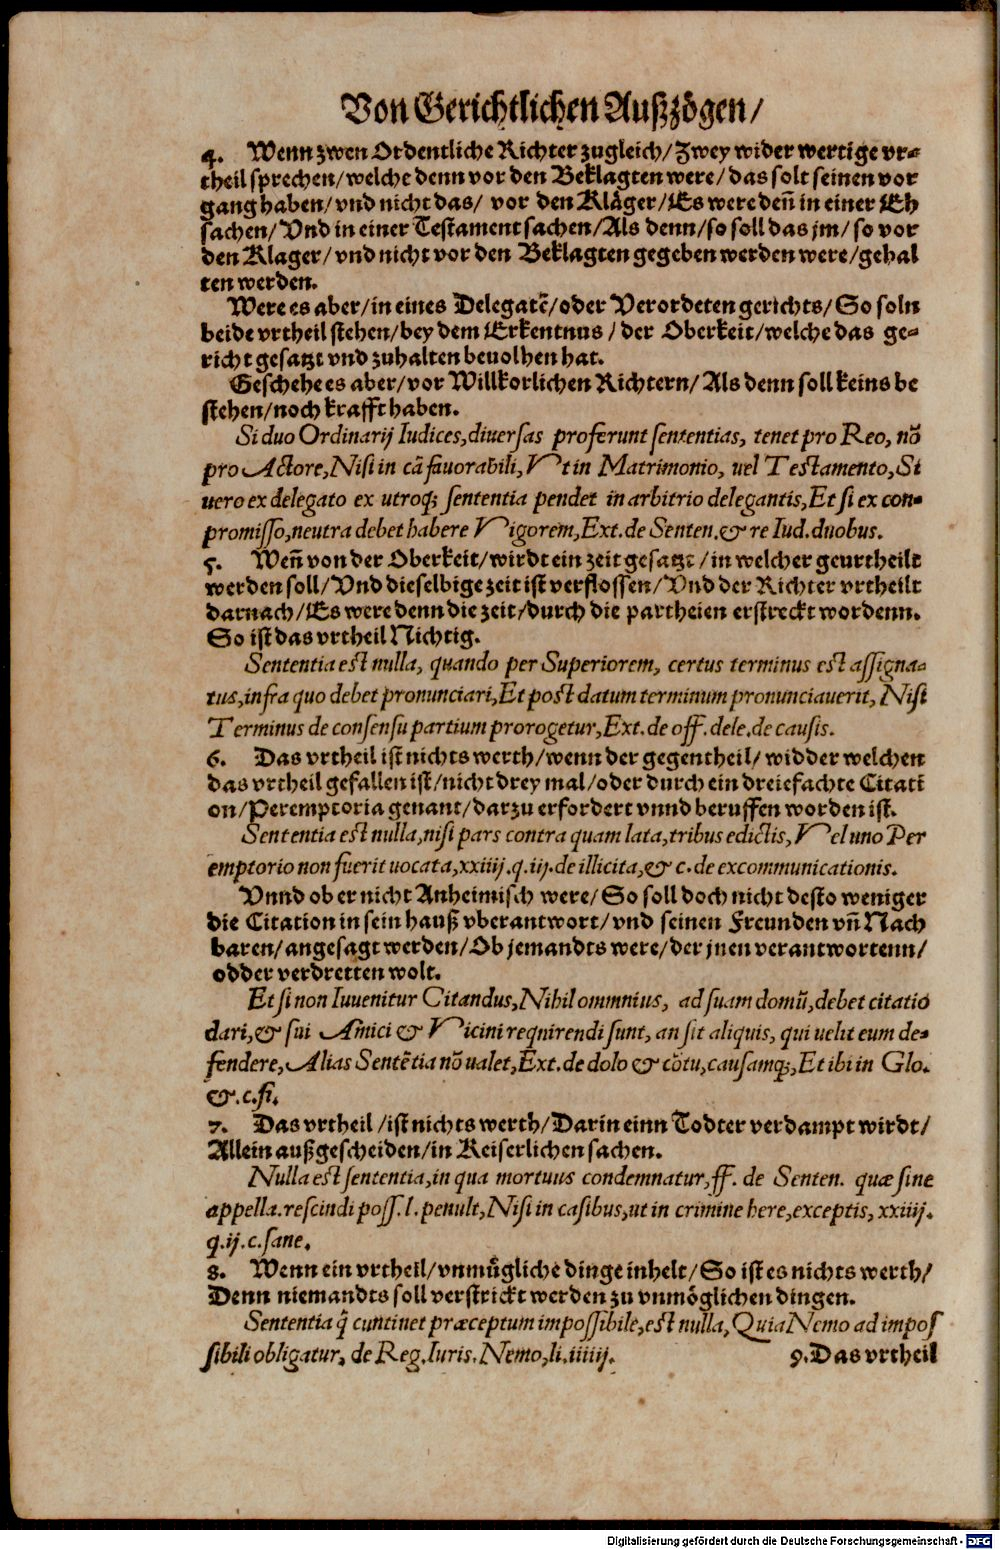 Von Gerichtlichen Außzögen/
4. Wenn zwen Ordentliche Richter zugleich/ Zwey wider wertige vr=
theil sprechen/ welche denn vor den Beklagten were/ das solt seinen vor
gang haben/ vnd nicht das/ vor den Kläger/ Es were deñ in einer Eh
sachen/ Vnd in einer Testament sachen/ Als denn/ so soll das jm/ so vor
den Klager/ vnd nicht vor den Beklagten gegeben werden were/ gehal
ten werden.
Were es aber/ in eines Delegatē/ oder Verordeten gerichts/ So soln
beide vrtheil stehen/ bey dem Erkentnus/ der Oberkeit/ welche das ge=
richt gesatzt vnd zuhalten beuolhen hat.
Geschehe es aber/ vor Willkorlichen Richtern/ Als denn soll keins be
stehen/ noch krafft haben.
Si duo Ordinarij Iudices, diuersas proferunt sententias, tenet pro Reo, nõ
pro Actore, Nisi in cã fauorabili, Vt in Matrimonio, uel Testamento, Si
uero ex delegato ex utroq; sententia pendet in arbitrio delegantis, Et si ex con=
promisso, neutra debet habere Vigorem, Ext. de Senten. & re Iud. duobus.
5. Weñ von der Oberkeit/ wirdt ein zeit gesatzt/ in welcher geurtheilt
werden soll/ Vnd dieselbige zeit ist verflossen/ Vnd der Richter vrtheilt
darnach/ Es were denn die zeit/ durch die partheien erstreckt wordenn.
So ist das vrtheil Nichtig.
Sententia est nulla, quando per Superiorem, certus terminus est assigna=
tus, infra quo debet pronunciari, Et post datum terminum pronunciauerit, Nisi
Terminus de consensu partium prorogetur, Ext. de off. dele. de causis.
6. Das vrtheil ist nichts werth/ wenn der gegentheil/ widder welchen
das vrtheil gefallen ist/ nicht drey mal/ oder durch ein dreiefachte Citati
on/ Peremptoria genant/ darzu erfordert vnnd beruffen worden ist.
Sententia est nulla, nisi pars contra quam lata, tribus edictis, Vel uno Per
emptorio non fuerit uocata, xxiiij. q. iij. de illicita, & c. de excommunicationis.
Vnnd ob er nicht Anheimisch were/ So soll doch nicht desto weniger
die Citation in sein hauß vberantwort/ vnd seinen Freunden vñ Nach
baren/ angesagt werden/ Ob jemandts were/ der jnen verantwortenn/
odder verdretten wolt.
Et si non Iuuenitur Citandus, Nihil omnnius, ad suam domũ, debet citatio
dari, & sui Amici & Vicini requirendi sunt, an sit aliquis, qui uelit eum de=
fendere, Alias Sentẽtia nõ ualet, Ext. de dolo & cõtu, causamq;, Et ibi in Glo.
&. c. fi.
7. Das vrtheil/ ist nichts werth/ Darin einn Todter verdampt wirdt/
Allein außgescheiden/ in Keiserlichen sachen.
Nulla est sententia, in qua mortuus condemnatur, ff. de Senten. quæ sine
appella. rescindi poss. l. penult, Nisi in casibus, ut in crimine here, exceptis, xxiiij.
q. ij. c. sane.
8. Wenn ein vrtheil/ vnmügliche dinge inhelt/ So ist es nichts werth/
Denn niemandts soll verstrickt werden zu vnmöglichen dingen.
Sententia q̃ cuntinet præceptum impossibile, est nulla, Quia Nemo ad impos
sibili obligatur, de Reg. Iuris. Nemo, li. iiiiij. 9. Das vrtheil
Digitalisierung gefördert durch die Deutsche Forschungsgemeinschaft - DFG